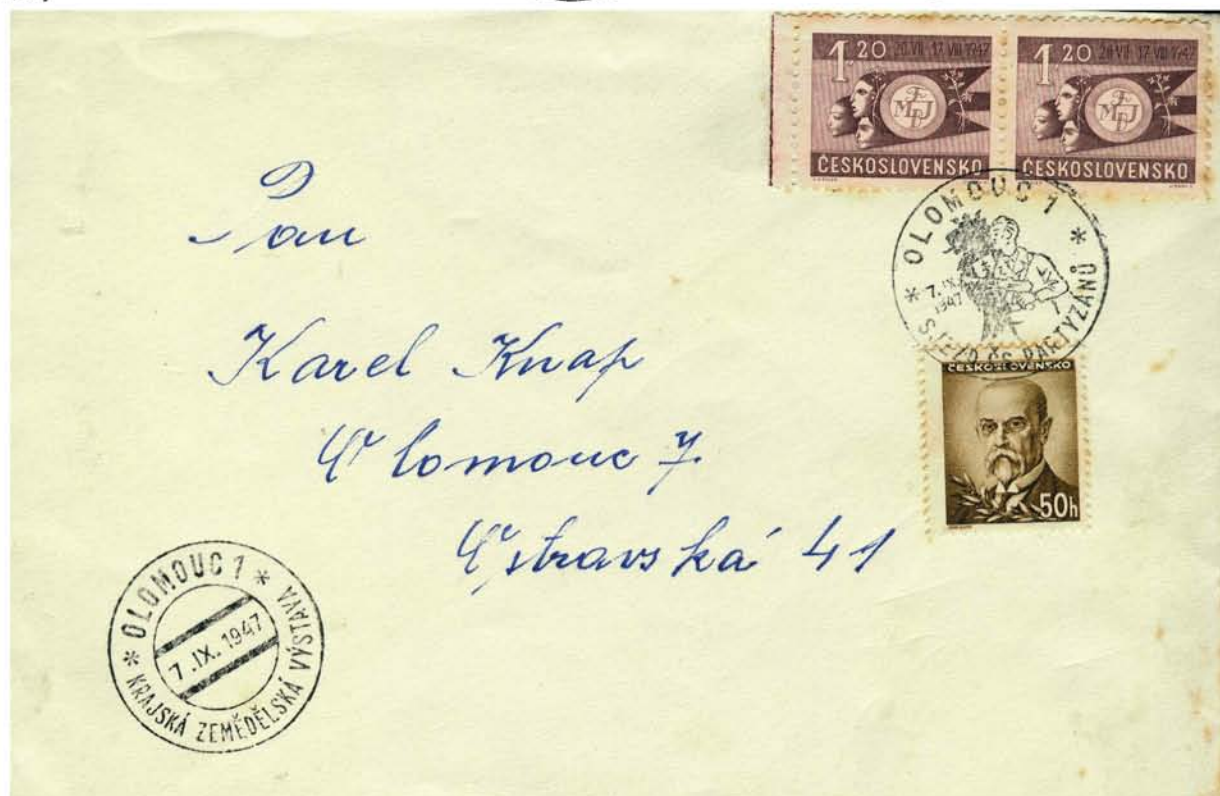 1 20 20 VII - 17 VIII 1947
F
MDJ
ČESKOSLOVENSKO
1 20 20 VII - 17 VIII 1947
F
MDJ
ČESKOSLOVENSKO
* OLOMOUC 1 *
7. IX.
1947
SJEZD ČS. PARTYZÁNŮ
ČESKOSLOVENSKO
50h
Pan
Karel Knap
Olomouc 7.
Ostravská 41
* OLOMOUC 1 *
7. IX. 1947
KRAJSKÁ ZEMĚDĚLSKÁ VÝSTAVA